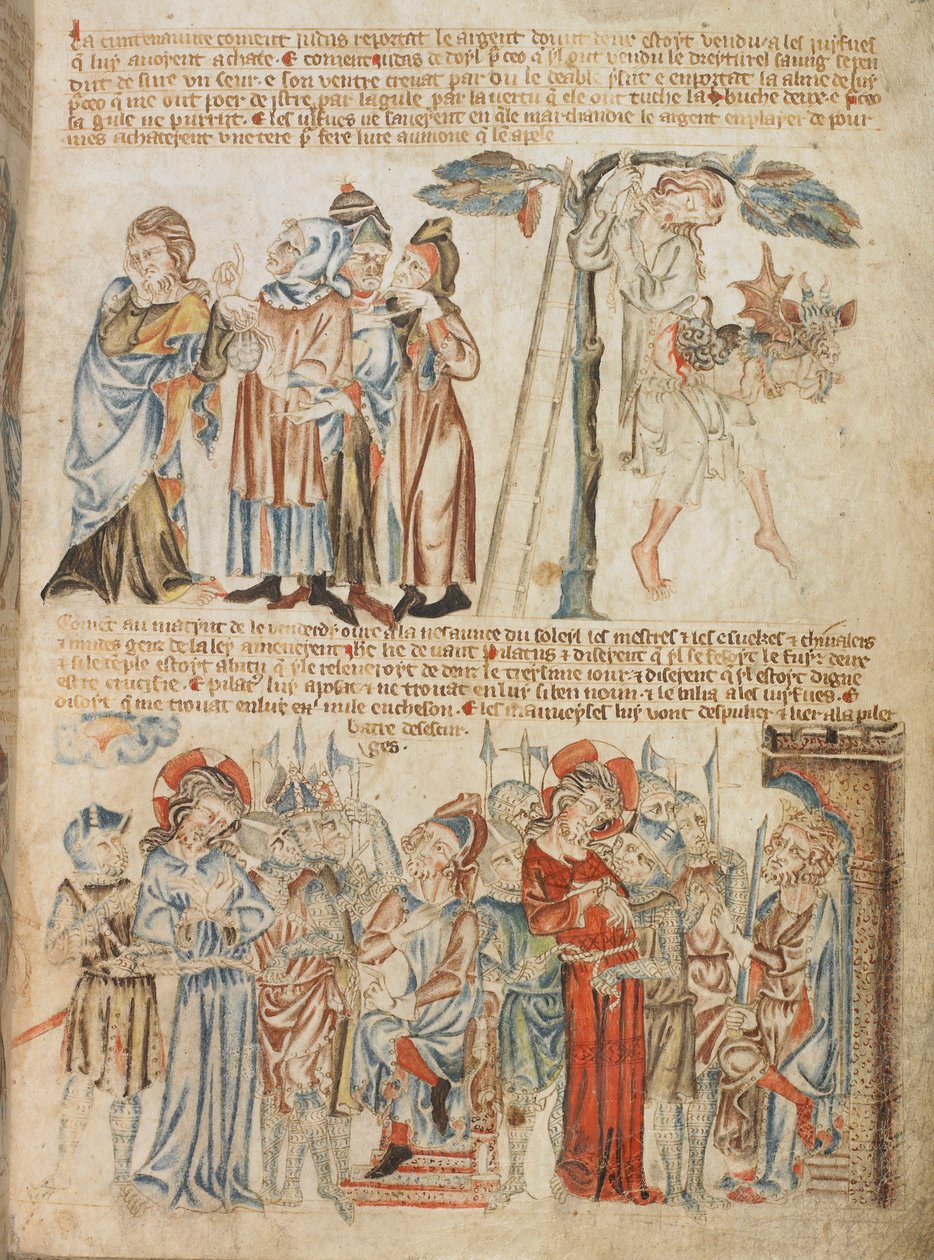 La cuntenaunce coment iudas reportat le argent dount deux estoyt vendu a les iuyfues
q luy auoyent achate. E coment iudas de doyl p ceo q yl out vendu le dreyturel saung se pen
dut de sure un ceur. e son ventre creuat par ou le deable ysut e enportat la alme de luy
p ceo q ne out poer de istre par la gule par la vertu q ele out tuche la buche deux. e p ceo
sa gule ne purrut. E les iuyfues ne saueyent en qle marchandie le argent enplayer de pour
mes achateyent une tere p fere lure aumone q le apele
Coment au matynt de le venderdy oure a la nesaunce du soleyl les mestres & les esuekes & chiualers
& mutes gent de la ley amenerent ihc lie deuant pilatus & diseyent q yl se feseyt le fuyz deux
& si le temple estoyt abatu q yl le releueroyt dedenz le treysime iour & diseyent q yl estoyt digne
estre crucifie. E pilat luy aposat & ne trouat en luy si ben noun. & le bailia a les iuyfues. E
disoyt q ne trouat en luy nule encheson. E les maueyses luy vont despulier & lier a la piler
batre de scour
ges.